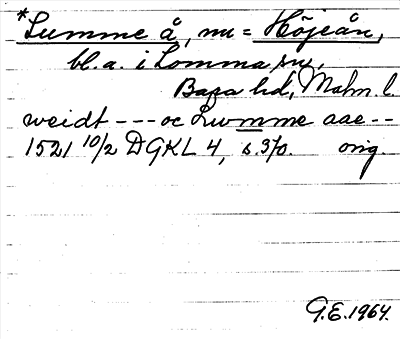 *Lumme å, nu = Höjeån,
bl.a. i Lomma sn,
Bara hd, Malm. l.
weidt --- oc Lumme aae --
1521 10/2 DGKL 4, s. 370. orig.
G.E. 1964.